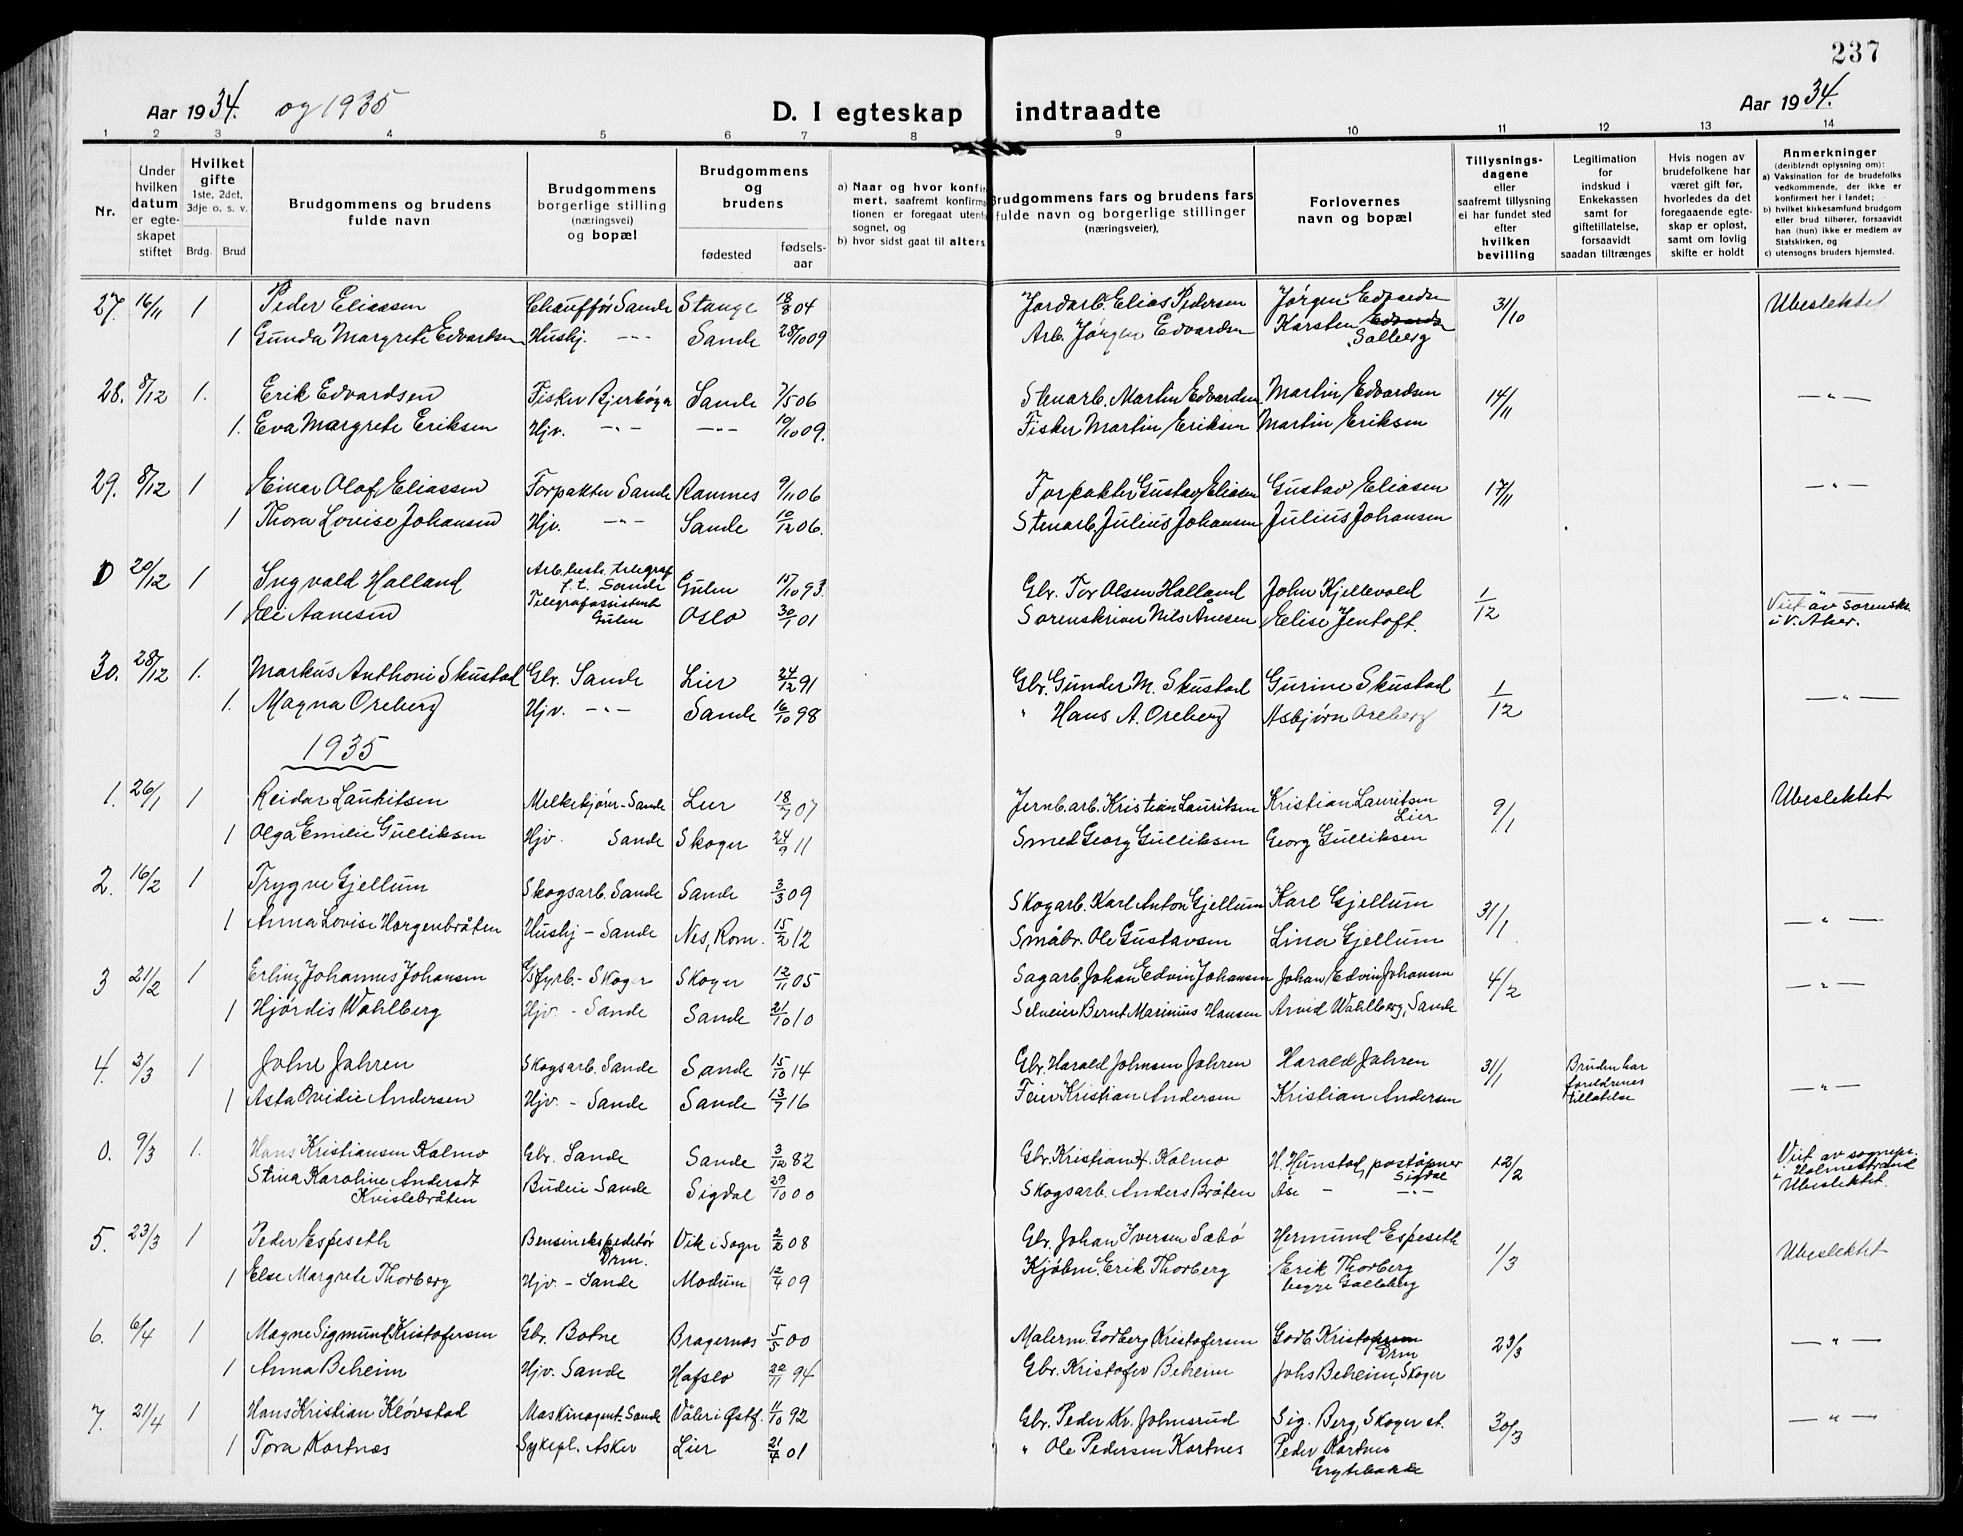 237
Aar 1934. og 1935
D. I egteskap indtraadte
Aar 1934.
1 2 3 4 5 6 7 8 9 10 11 12 13 14
Nr.
Under hvilken datum er egteskapet stiftet
Hvilket gifte 1ste, 2det, 3dje o. s. v.
Brdg. Brud
Brudgommens og brudens fulde navn
Brudgommens borgerlige stilling (næringsvei) og bopæl
Brudgommens og brudens
fødested
fødsels-aar
a) Naar og hvor konfirmert, saafremt konfirmationen er foregaat utenfor sognet, og
b) hvor sidst gaat til alters
Brudgommens fars og brudens fars fulde navn og borgerlige stillinger (næringsveier),
Forlovernes navn og bopæl
Tillysnings-dagene eller saafremt tillysning ei har fundet sted efter hvilken bevilling
Legitimation for indskud i Enkekassen samt for giftetillatelse, forsaavidt saadan tiltrænges
Hvis nogen av brudefolkene har været gift før, hvorledes da det foregaaende egteskap er opløst, samt om lovlig skifte er holdt
Anmerkninger (deriblendt oplysning om): a) Vaksination for de brudefolks vedkommende, der ikke er konfirmert her i landet; b) hvilket kirkesamfund brudgom eller brud tilhører, forsaavidt han (hun) ikke er medlem av Statskirken, og c) utensogns bruders hjemsted.
27. 16/11 1 Peder Eliassen Chauffør Sande Stange 18/8 04 Jordarb. Elias Pedersen Jørgen Edvardsen 31/10 Ubeslektet
1 Gunda Margrete Edvardsen Hushj. -"- Sande 28/10 09 Arb. Jørgen Edvardsen Karsten Solberg
28. 8/12 1. Erik Edvardsen Fisker Bjerkøya Sande 7/5 06 Stenarb. Martin Edvardsen Martin Edvardsen 14/11 -"-
1. Eva Margrete Eriksen Hjv. -"- -"- 10/10 09. Fisker Martin Eriksen Martin Eriksen
29. 8/12 1 Einar Olaf Eliassen Forpakter Sande Ramnes 9/11 06 Forpakter Gustav Eliasen Gustav Eliasen 17/11 -"-
1 Thora Lovise Johansen Hjv. -"- Sande 10/12 06. Stenarb. Julius Johansen Julius Johansen
0 20/12 1 Ingvald Halland Arb.best. telegraf f.t. Sande Gulen 17/10 93. Gbr. Tor Olsen Halland John Kjellevold 1/12 Viet av sorensk.
1 Eli Aanesen Telegrafassistent Gulen Oslo 30/1 01 Sorenskriver Nils Ånesen Elise Jentoft. i V. Aker.
30. 28/12 1. Markus Anthoni Skustad Gbr. Sande Lier 24/12 91 Gbr. Gunder M. Skustad Gurine Skustad 1/12 -"-
1. Magna Oreberg Hjv. -"- Sande 16/10 98 " Hans A. Oreberg Asbjørn Oreberg
1935
1. 26/1 1 Reidar Lauritsen Melkekjører - Sande Lier 18/7 07 Jernb.arb. Kristian Lauritsen Kristian Lauritsen Lier 9/1 Ubeslektet
1 Olga Emilie Gulliksen Hjv. Sande Skoger 24/9 11 Smed Georg Gulliksen Georg Gulliksen
2. 16/2 1 Trygve Gjellum Skogsarb. Sande Sande 3/3 09 Skogarb. Karl Anton Gjellum Karl Gjellum 31/1 -"-
1 Anna Lovise Horgenbråten Hushj - Sande Nes, Rom. 15/2 12 Småbr. Ole Gustavsen Lina Gjellum
3 21/2 1 Erling Johannes Johansen Skoger Skoger 12/11 05 Sagarb. Johan Edvin Johansen Johan Edvin Johansen 4/2 -"-
1 Hjørdis Wahlberg Hjv. - Sande Sande 21/10 10 Selveier Bernt Marinius Hansen Arvid Wahlberg, Sande
4. 3/3 1 John Jahren Skogsarb. Sande Sande 15/10 14 Gbr. Harald Johnsen Jahren Harald Jahren 31/1 Bruden har foreldrenes tillatelse -"-
1 Asta Ovidie Andersen Hjv. - Sande Sande 13/7 16 Feier Kristian Andersen Kristian Andersen
0. 9/3 1. Hans Kristiansen Kolmo Gbr. Sande Sande 3/12 82 Gbr. Kristian H. Kolmo H. Hunstad, poståpner Sigdal 12/2 Viet av sognepr. i Holmestrand
Stina Karoline Andersdt Kvislebråten Budeie Sande Sigdal 29/10 00 Skogsarb. Anders Bråten Åse - -"- Ubeslektet.
5. 23/3 1 Peder Espeseth Bensinekspeditør Drm. Vik i Sogn 2/2 08 Gbr. Johan Iversen Sæbø Hermund Espeseth 1/3 Ubeslektet
1 Else Margrete Thorberg Hjv. - Sande Modum 12/4 09 Kjøbm. Erik Thorberg Erik Thorberg begge Galleberg
6. 6/4 1 Magne Sigmund Kristofersen Gbr. Botne Bragernæs 5/5 00 Malerm. Godberg Kristofersen Godb. Kristofersen Drm 23/3 -"-
1 Anna Beheim Hjv. Sande Hafslo 22/11 94 Gbr. Kristofer Beheim Johs Beheim, Skoger
7. 21/4 1 Hans Kristian Kløvstad Maskinagent. Sande Våler i Østf. 11/10 92 Gbr. Peder Kr. Johnsrud Sig. Berg, Skoger st. 30/3 -"-
1 Tora Kortnes Sykepl. Asker Lier 21/4 01 " Ole Pedersen Kortnes Peder Kortnes